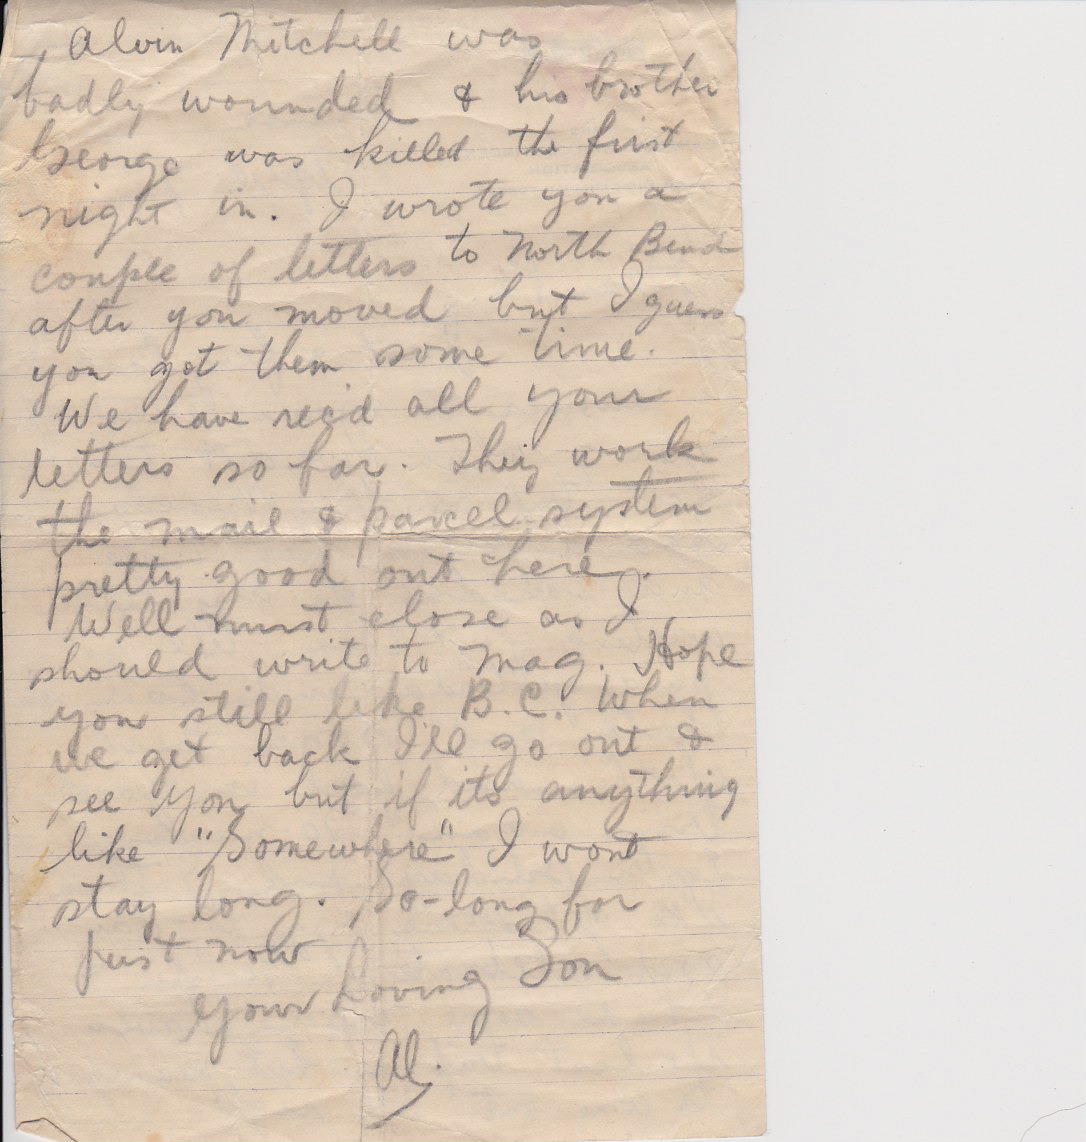 Alvin Mitchell was
badly wounded & his brother
George was killed the first
night in. I wrote you a
couple of letters to North Bend
after you moved but I guess
you got them some time.
We have rec'd all your
letters so far. They work
the mail & parcel system
pretty good out here.
Well must close as I
should write to Mag. Hope
you still like B.C. When
we get back I'll go out &
see you but if its anything
like "Somewhere" I wont
stay long. So-long for
just now
Your Loving Son
Al.